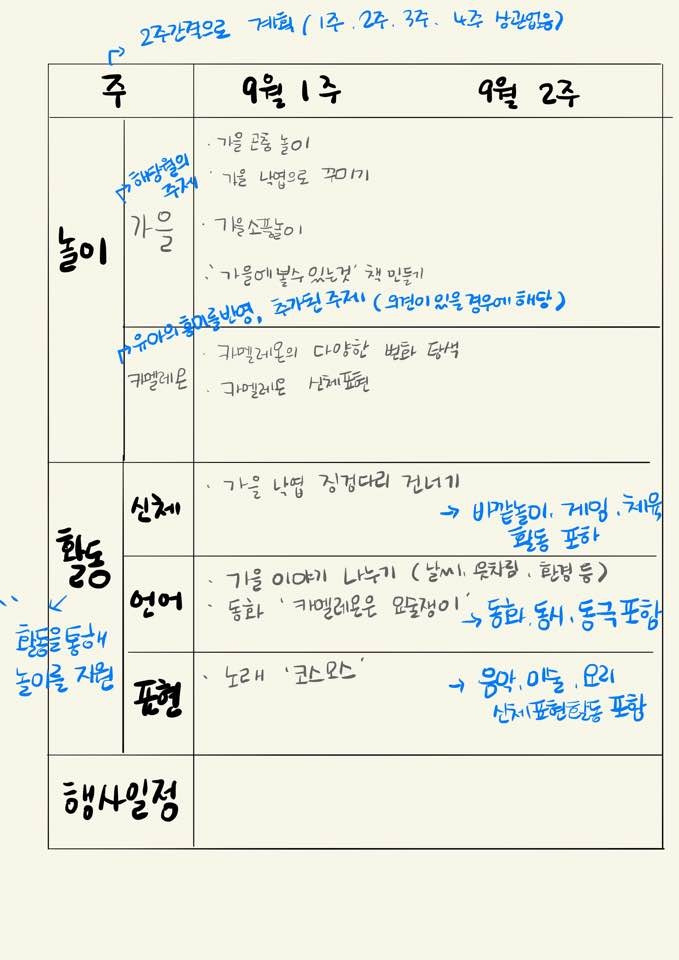 2주간격으로 계획 (1주. 2주. 3주. 4주 상관없음)
주 9월 1주 9월 2주
놀이
해당월의
주제
가을
· 가을 곤충 놀이
· 가을 낙엽으로 꾸미기
· 가을소풍놀이
· '가을에 볼수 있는것' 책 만들기
유아의 흥미를 반영, 추가된 주제 (의견이 있을 경우에 해당)
카멜레온
· 카멜레온의 다양한 변화 탐색
· 카멜레온 신체표현
활동
신체
· 가을 낙엽 징검다리 건너기
→ 바깥놀이, 게임, 체육
활동 포함
언어
· 가을 이야기 나누기 (날씨, 옷차림, 환경 등)
· 동화 '카멜레온은 요술쟁이'
→ 동화, 동시, 동극 포함
활동을 통해
놀이를 지원
표현
· 노래 '코스모스'
→ 음악, 미술, 요리
신체표현활동 포함
행사일정